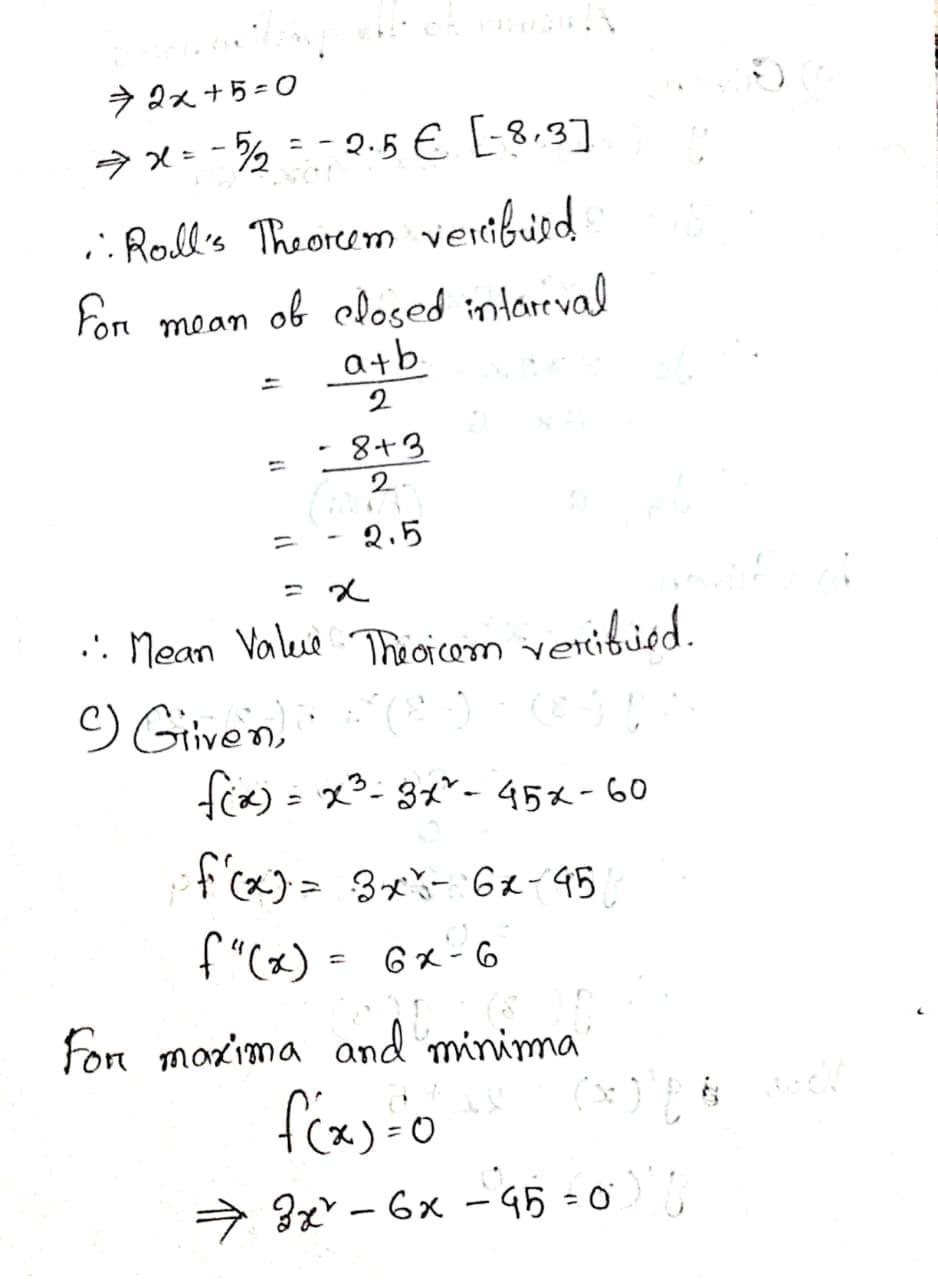 ⇒ 2x + 5 = 0
⇒ x = - 5/2 = - 2.5 ∈ [-8,3]
∴ Roll's Theorem verified
For mean of closed interval
= a+b / 2
= - 8+3 / 2
= - 2.5
= x
∴ Mean Value Theorem verified.
c) Given,
f(x) = x³ - 3x² - 45x - 60
f'(x) = 3x² - 6x - 45
f"(x) = 6x - 6
For maxima and minima
f'(x) = 0
⇒ 3x² - 6x - 45 = 0